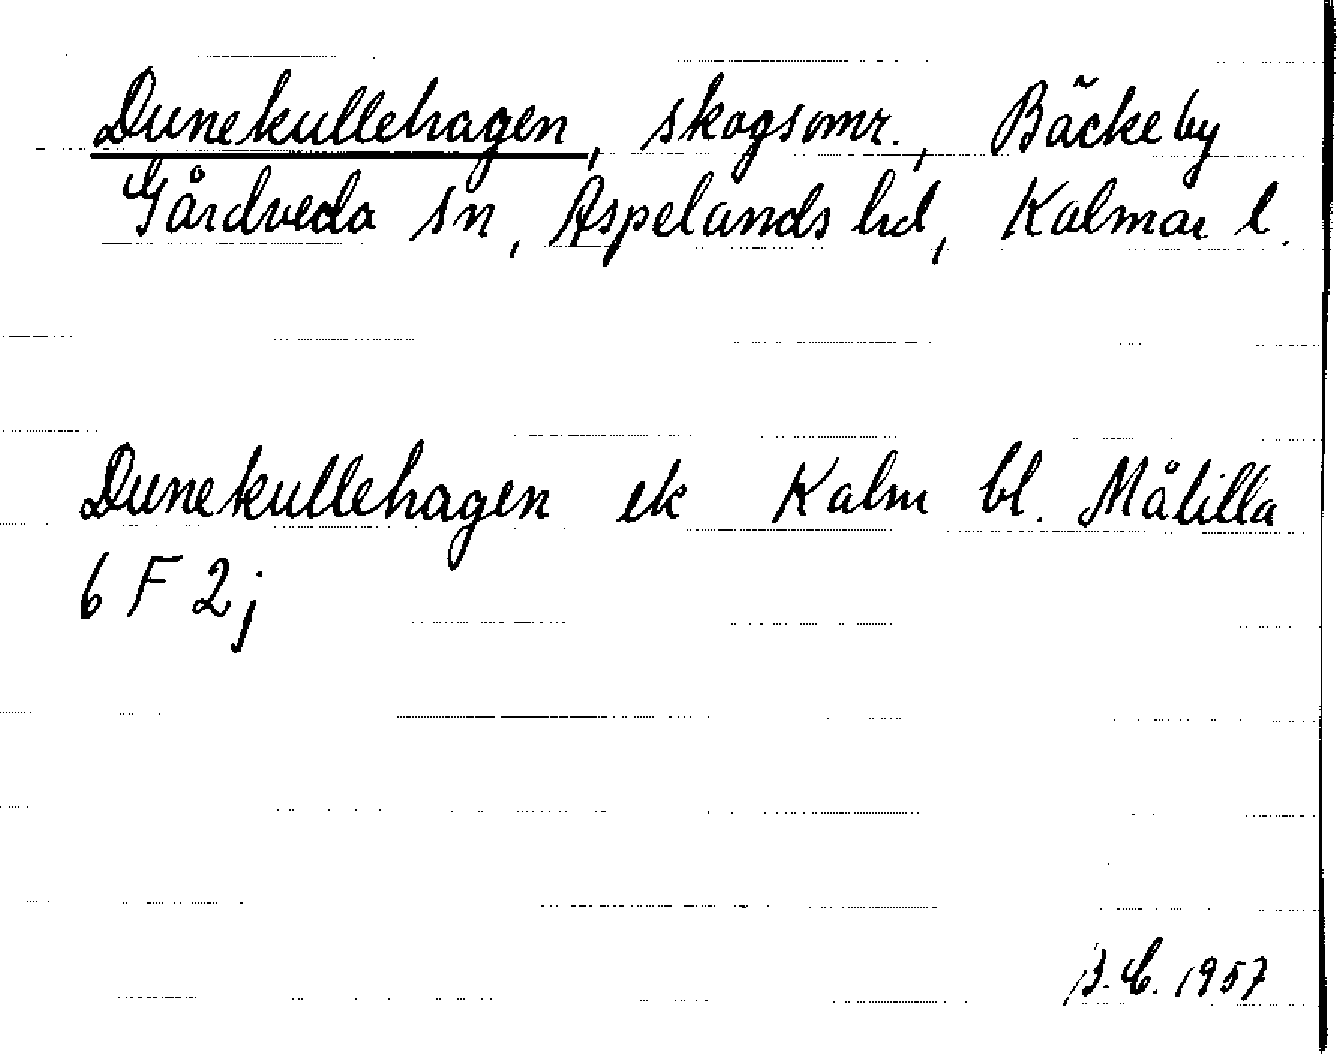 Dunekullehagen, skogsomr., Bäckeby
Gårdveda sn, Aspelands hd, Kalmar l.
Dunekullehagen ek Kalm bl. Målilla
6 F 2j
B.E. 1957